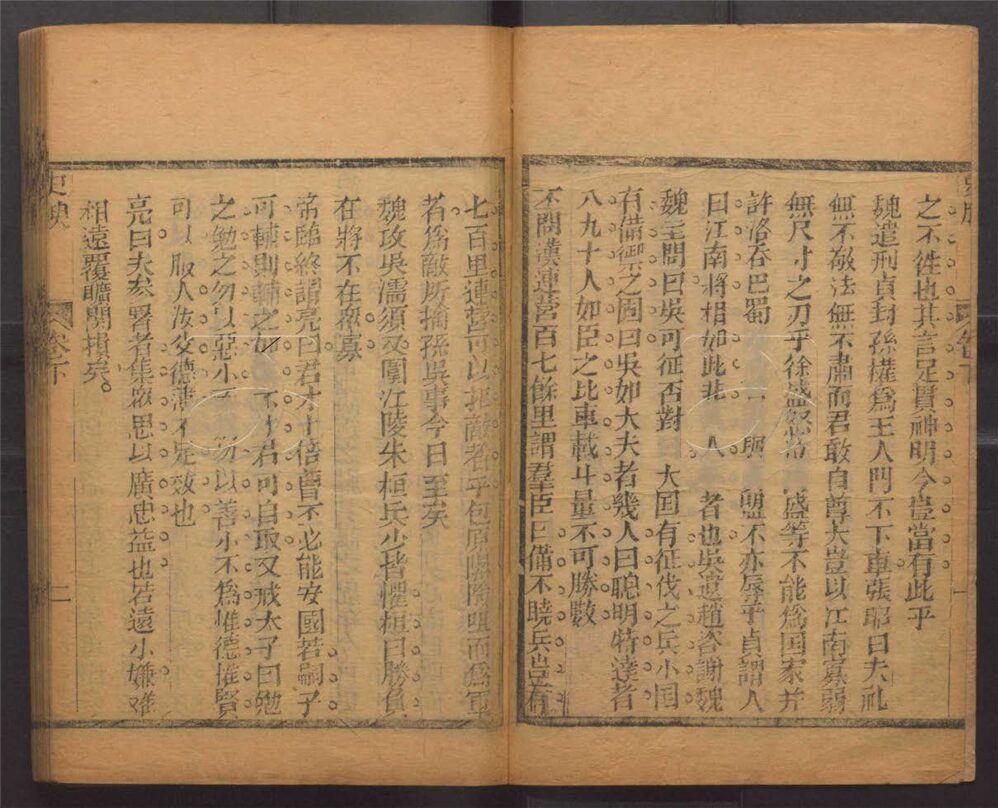 之不徃也其言足貫神明今豈當有此乎
魏遣刑貞封孫權爲王人門不下車張昭曰夫礼
無不敬法無不肅而君敢自尊大豈以江南寡弱
無尺寸之刃乎徐盛忿 盛等不能爲国家并
許洛吞巴蜀 與 盟不亦辱乎貞謂人
曰江南將相如此非 人 者也吳遣趙咨謝魏
魏主問曰吳可征否對曰大国有征伐之兵小国
有備禦之固曰吳如大夫者幾人曰聰明特達者
八九十人如臣之比車載斗量不可勝數
丕聞漢連營百七餘里謂羣臣曰備不曉兵豈有
七百里連營可以拒敵者乎包原隰險阻而爲軍
者爲敵所擒孫吳事今日至矣
魏攻吳濡須又圍江陵朱桓兵少皆懼桓曰勝負
在將不在衆寡
帝臨終謂亮曰君才十倍曹丕必能安國若嗣子
可輔則輔之如 不才君可自取又戒太子曰勉
之勉之勿以惡小 勿以善小不爲惟德惟賢
可以服人汝父德薄不足效也
亮曰夫叅署者集衆思以廣忠益也若遠小嫌难
相違覆曠闕損矣
史
卷下
二
卷下
一